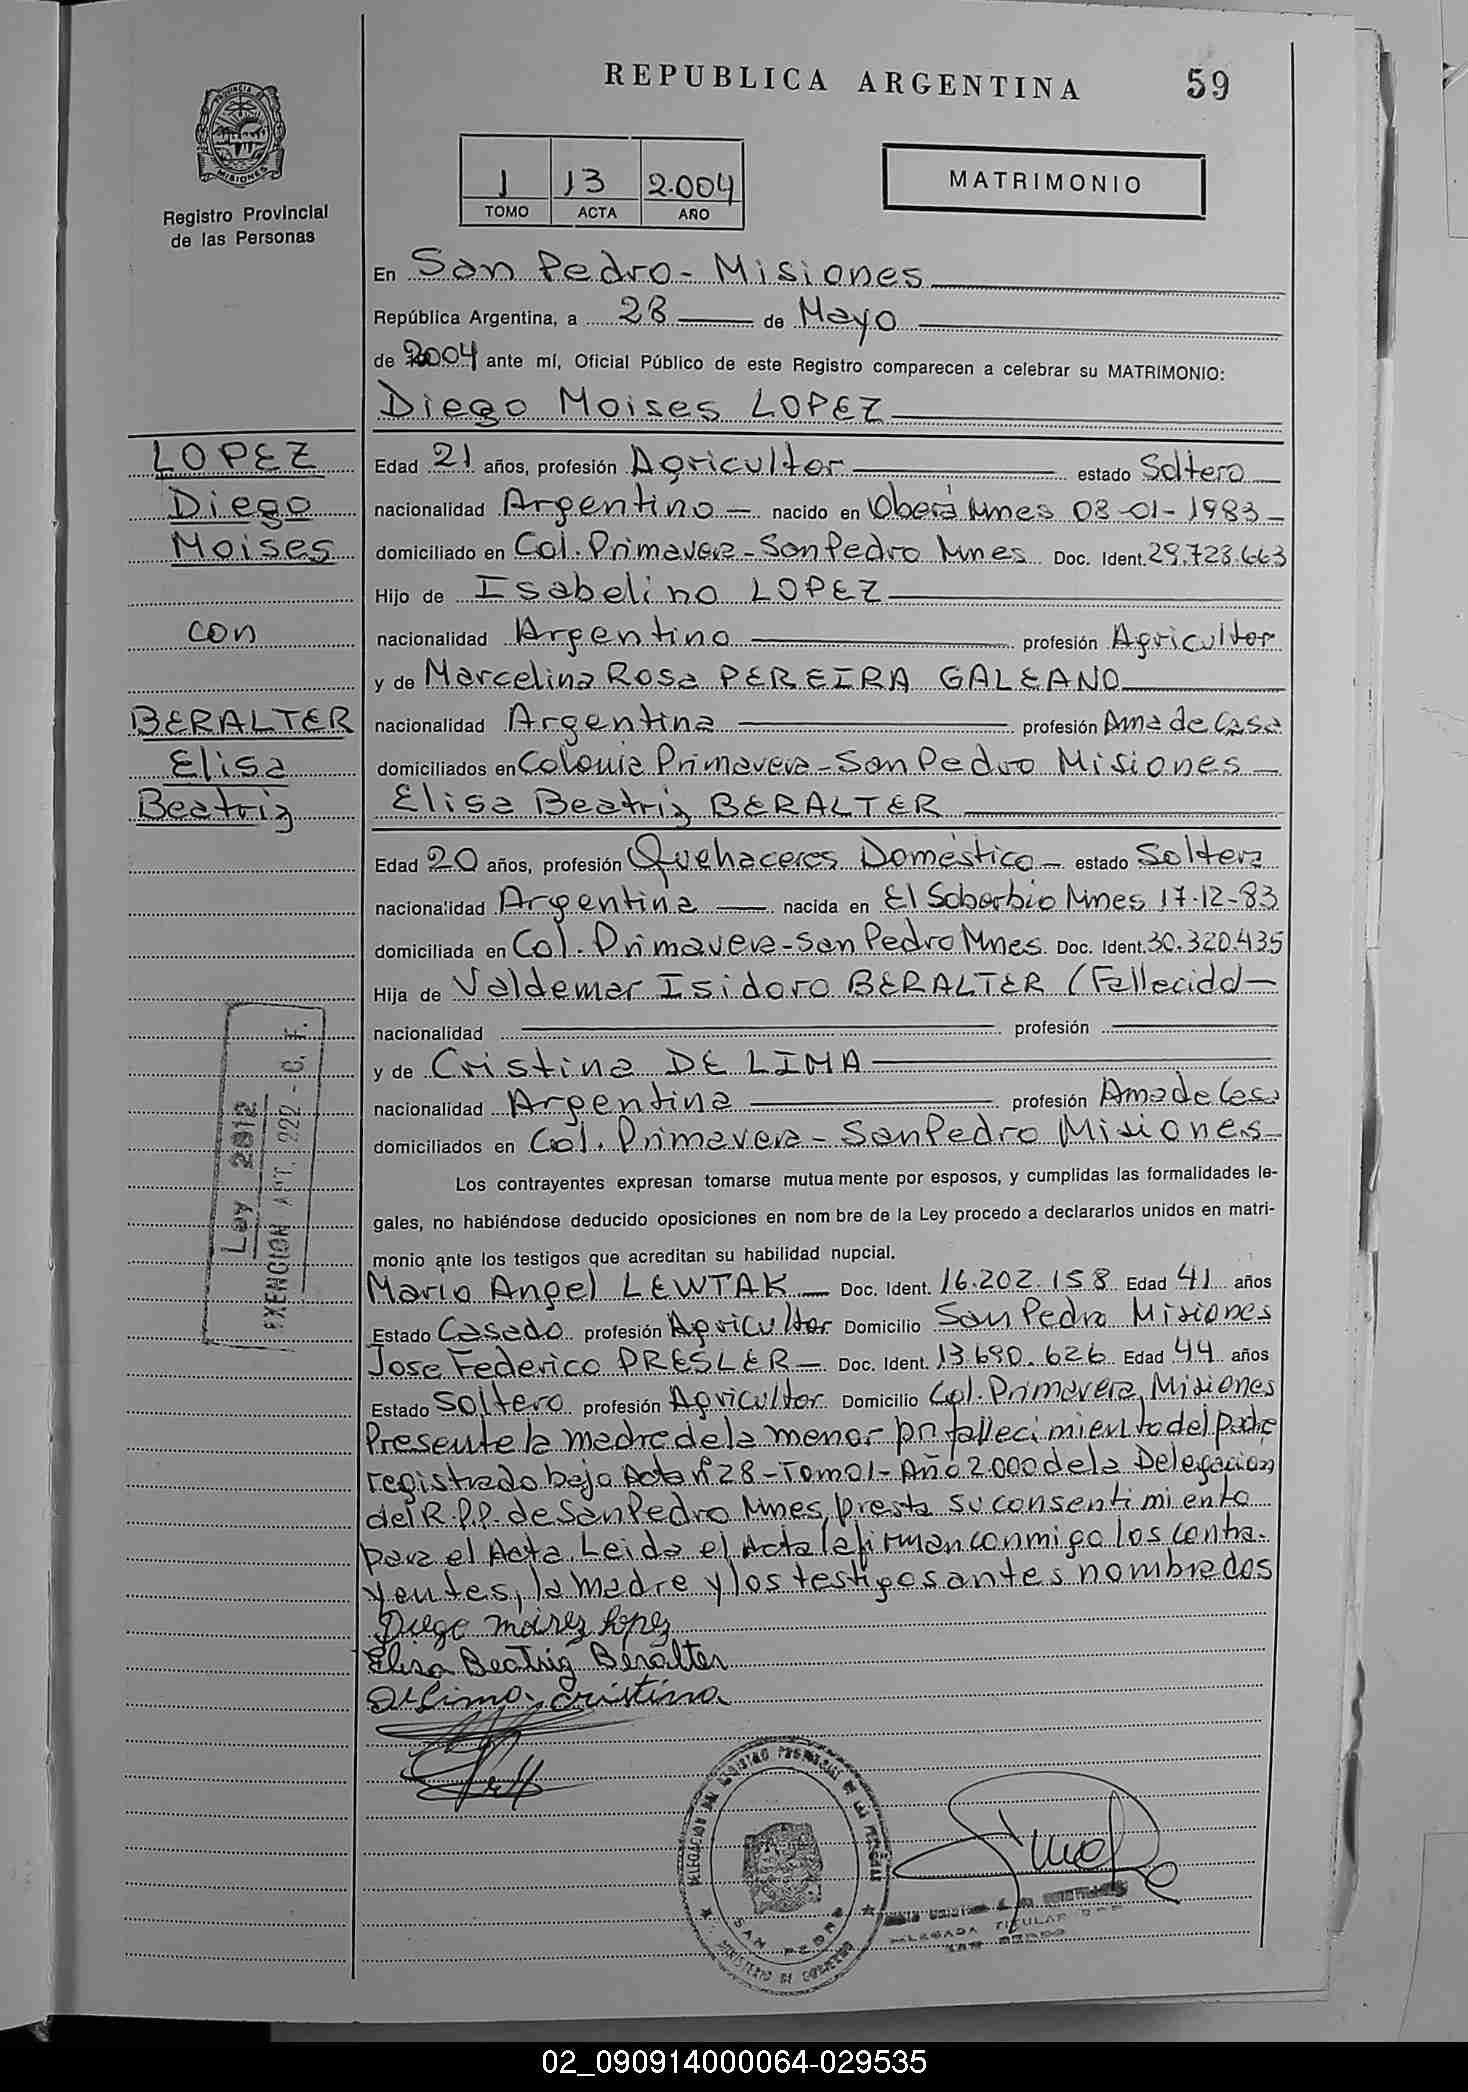 REPUBLICA ARGENTINA
59
PROVINCIA DE
MISIONES
Registro Provincial
de las Personas
1 13 2.004
TOMO ACTA AÑO
MATRIMONIO
En San Pedro - Misiones
República Argentina, a 28 de Mayo
de 2004 ante mí, Oficial Público de este Registro comparecen a celebrar su MATRIMONIO:
Diego Moises LOPEZ
LOPEZ
Diego
Moises
con
BERALTER
Elisa
Beatriz
Edad 21 años, profesión Agricultor estado Soltero
nacionalidad Argentino - nacido en Oberá Mnes 03-01-1983 -
domiciliado en Col. Primavera - San Pedro Mnes. Doc. Ident. 29.723.663
Hijo de Isabelino LOPEZ
nacionalidad Argentino profesión Agricultor
y de Marcelina Rosa PEREIRA GALEANO
nacionalidad Argentina profesión Ama de Casa
domiciliados en Colonia Primavera - San Pedro Misiones -
Elisa Beatriz BERALTER
Edad 20 años, profesión Quehaceres Doméstico - estado Soltera
nacionalidad Argentina - nacida en El Soberbio Mnes 17-12-83
domiciliada en Col. Primavera - San Pedro Mnes. Doc. Ident. 30.320.435
Hija de Valdemar Isidoro BERALTER (Fallecido) -
nacionalidad profesión
y de Cristina DE LIMA
nacionalidad Argentina profesión Ama de Casa
domiciliados en Col. Primavera - San Pedro Misiones -
Los contrayentes expresan tomarse mutua mente por esposos, y cumplidas las formalidades le-
gales, no habiéndose deducido oposiciones en nom bre de la Ley procedo a declararlos unidos en matri-
monio ante los testigos que acreditan su habilidad nupcial.
Mario Angel LEWTAK - Doc. Ident. 16.202.158 Edad 41 años
Estado Casado profesión Agricultor Domicilio San Pedro Misiones
Jose Federico PRESLER - Doc. Ident. 13.690.626 Edad 44 años
Estado Soltero profesión Agricultor Domicilio Col. Primavera, Misiones
Presente la madre de la menor por fallecimiento del padre
registrado bajo Acta Nº 28 - Tomo 1 - Año 2.000 de la Delegación
del R.P.P. de San Pedro Mnes, presta su consentimiento
para el Acta. Leida el Acta la firman conmigo los contra-
yentes, la madre y los testigos antes nombrados
Diego Moirez Lopez
Elisa Beatriz Beralter
De Lima, Cristina
Ley 2812
EXENCION ART. 222 - C. F.
DELEGACION DEL REGISTRO PROVINCIAL DE LAS PERSONAS
SAN PEDRO
MINISTERIO DE GOBIERNO
DELEGADA TITULAR
SAN PEDRO
02_090914000064-029535